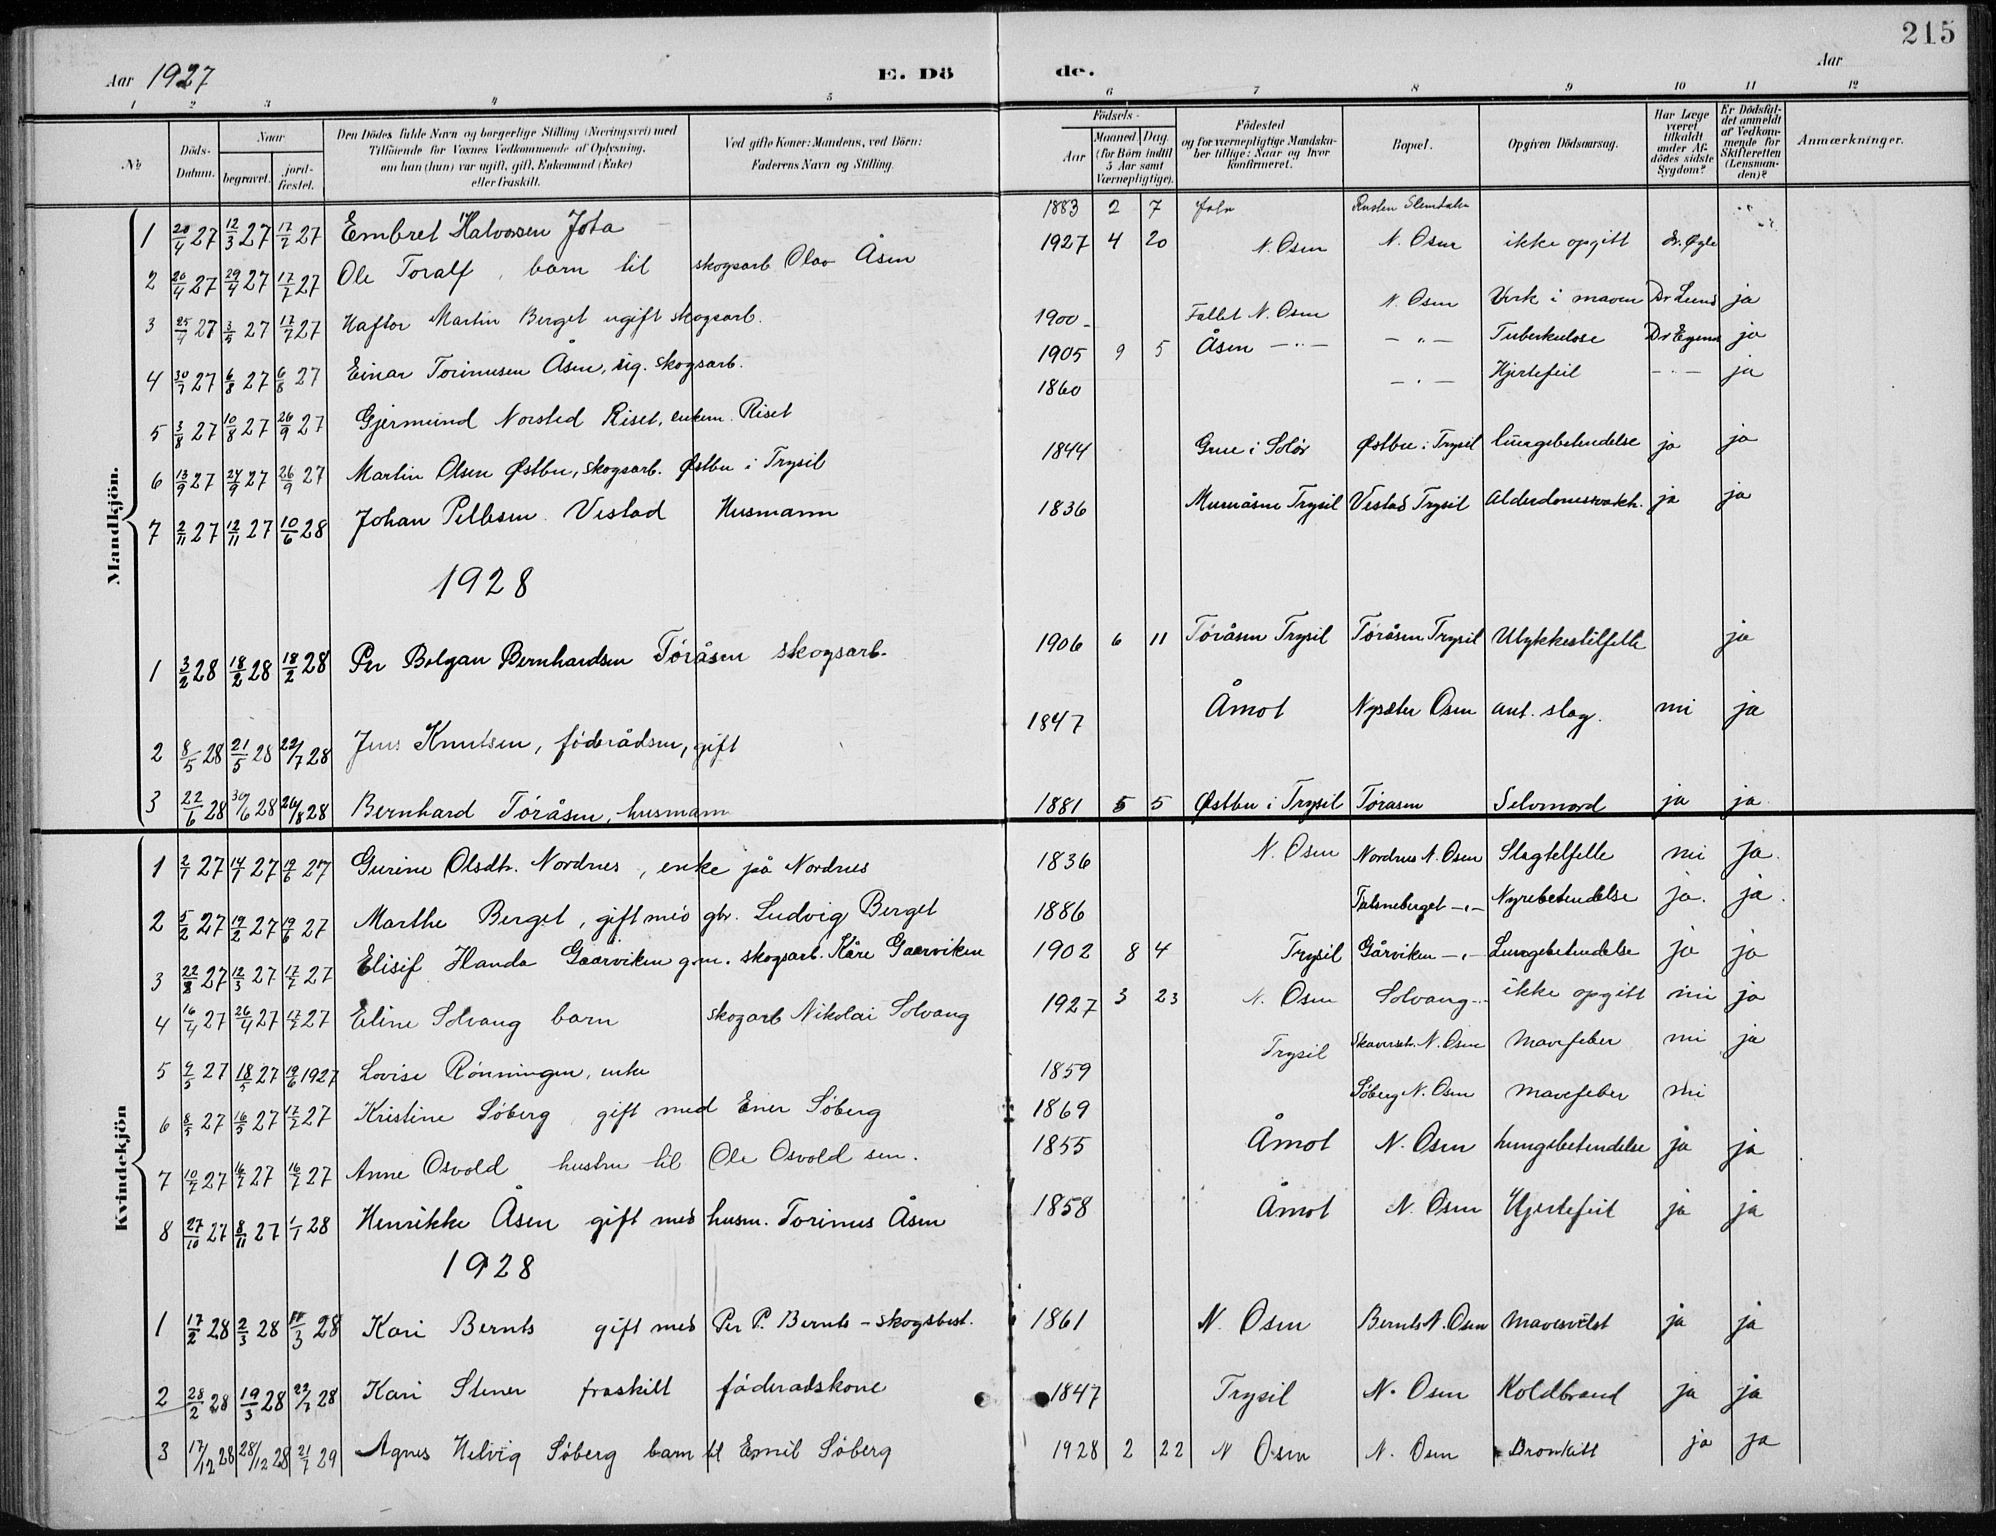 215
Aar 1927 E. Dö de. Aar
1 2 3 4 5 6 7 8 9 10 11 12
№
Döds-Datum.
Naar
begravet.
jordfæstet.
Den Dödes fulde Navn og borgerlige Stilling (Næringsvei) med Tilföiende for Voxnes Vedkommende af Oplysning, om han (hun) var ugift, gift, Enkemand (Enke) eller fraskilt.
Ved gifte Koner: Mandens, ved Börn: Faderens Navn og Stilling.
Födsels-
Aar
Maaned Dag
(for Börn indtil 5 Aar samt Værnepligtige).
Födested og for værnepligtige Mandskaber tillige: Naar og hvor konfirmeret.
Bopæl.
Opgiven Dödsaarsag.
Har Læge været tilkaldt under Afdödes sidste Sygdom?
Er Dödsfaldet anmeldt af Vedkommende for Skifteretten (Lensmanden)?
Anmærkninger.
Mandkjön.
1 20/4 27 12/3 27 17/7 27 Embret Halvorsen Jota 1883 2 7
2 20/4 27 29/4 27 17/7 27 Ole Toralf, barn til skogsarb Olav Åsen 1927 4 20 N. Osen N. Osen ikke opgitt
3 25/4 27 3/5 27 17/7 27 Haftor Martin Berget ugift skogsarb. 1900 Fallet N. Osen N. Osen Verk i maven Dr Lund ja
4 30/7 27 6/8 27 6/8 27 Einar Torinusen Åsen, ug. skogsarb. 1905 9 5 Åsen —"— —"— Tuberkulose ja
5 3/8 27 10/8 27 26/9 27 Gjermund Norsted Riset, enkem. Riset 1860 —"— Hjertefeil —"— ja
6 13/9 27 24/9 27 26/9 27 Martin Olsen Østbu, skogsarb. Østbu i Trysil 1844 Grue i Solør Østbu i Trysil lungebetendelse ja ja
7 2/11 27 12/11 27 10/6 28 Johan Pellesen Vestad Husmann 1836 Trysil Vestad Trysil ja ja
1928
1 3/2 28 18/2 28 18/2 28 Per Bolgan Bernhardsen Töråsen skogsarb. 1906 6 11 Töråsen Trysil Töråsen Trysil Ulykkestilfelle ja
2 8/5 28 21/5 28 22/7 28 Jens Knutsen, föderådsm, gift 1847 Åmot Nysæter Osen ant. slag. nei ja
3 22/6 28 30/6 28 26/8 28 Bernhard Töråsen, husmann 1881 5 5 Østbu i Trysil Törasen Selvmord ja ja
Kvindekjön
1 2/1 27 14/1 27 19/6 27 Gurine Olsdtr. Nordnes, enke på Nordnes 1836 N. Osen Nordnes N. Osen Slagtilfelle nei ja.
2 5/2 27 19/2 27 19/6 27 Marthe Berget, gift med gbr. Ludvig Berget 1886 Nyrebetendelse ja. ja.
3 22/8 27 12/3 27 17/7 27 Elisif Handa Gaarviken g.m. skogsarb. Kåre Gaarviken 1902 8 4 Trysil Gårviken —"— Lungebetendelse ja ja
4 16/4 27 26/4 27 17/7 27 Eline Solvang barn skogarb Nikolai Solvang 1927 3 23 N. Osen Solvang —"— ikke opgitt nei ja
5 9/5 27 18/5 27 19/6 1927 Lovise Rønningen, enke 1859 Trysil N. Osen Mavefeber nei ja
6 8/5 27 16/5 27 17/7 27 Kristine Söberg gift med Ener Söberg 1869 Söberg N. Osen mavefeber nei
7 10/7 27 16/7 27 16/7 27 Anne Osvold hustru til Ole Osvold sen. 1855 Åmot N. Osen lungebetendelse ja ja
8 27/10 27 8/11 27 1/1 28 Henrikke Åsen gift med husm. Torinus Åsen 1858 Åmot N. Osen Hjertefeil ja ja
1928
1 17/2 28 2/3 28 11/3 28 Kari Bernts gift med Per P. Bernts - skogsbest. 1861 N. Osen Bernts N. Osen ja ja
2 28/2 28 19/3 28 22/7 28 Kari Stener fraskilt föderadskone 1847 Trysil N. Osen Koldbrand ja ja
3 17/12 28 28/12 28 21/7 29 Agnes Helvig Söberg barn til Emil Söberg 1928 2 22 N Osen N. Osen Bronkitt ja ja